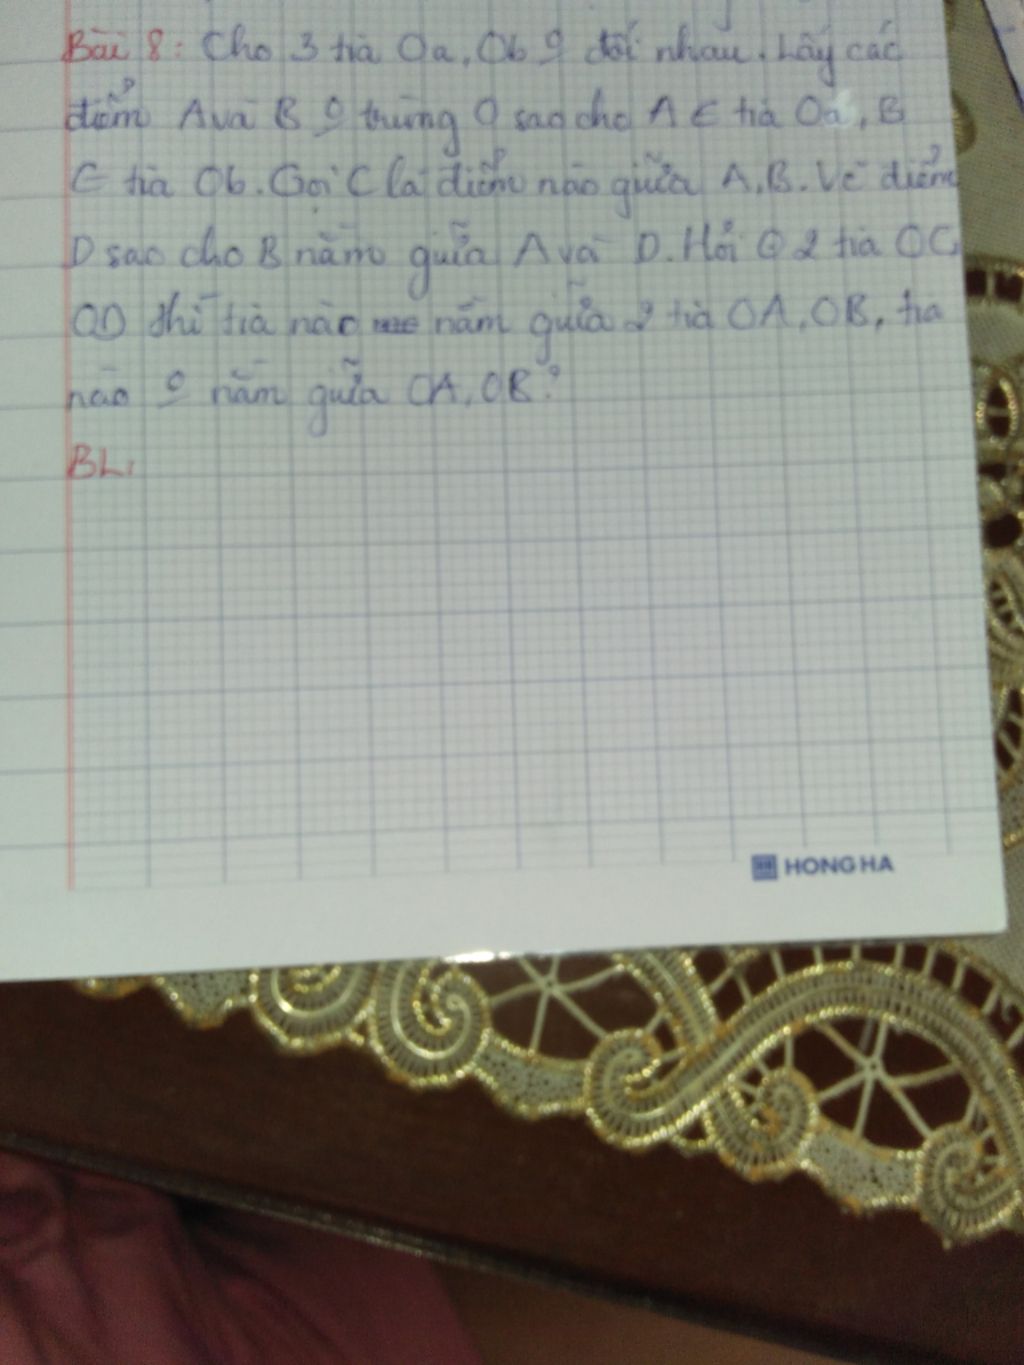 Bài 8: Cho 3 tia Oa, Ob o đối nhau. Lấy các
điểm A và B o trùng O sao cho A ∈ tia Oa, B
∈ tia Ob. Gọi C là điểm nào giữa A, B. Vẽ điểm
D sao cho B nằm giữa A và D. Hỏi 2 tia OC,
OD thì tia nào nằm giữa 2 tia OA, OB, tia
nào o nằm giữa OA, OB?
BL:
HONG HA